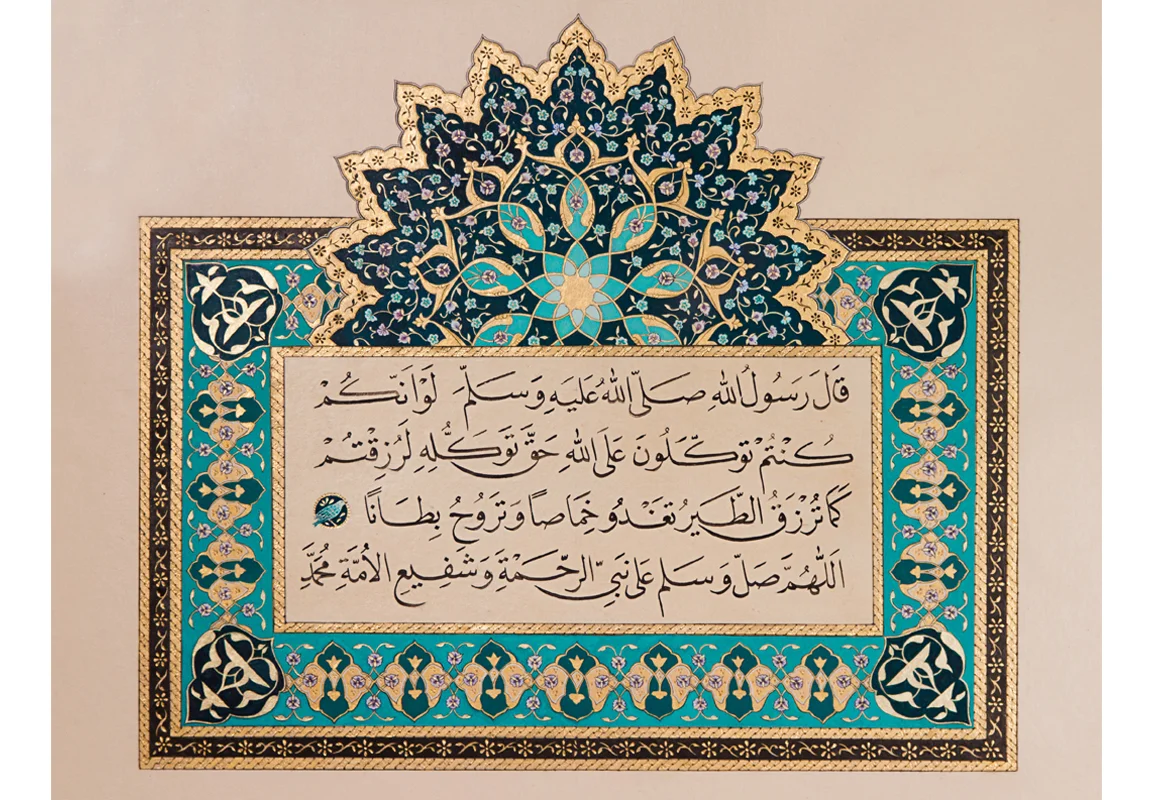 قَالَ رَسُولُ اللهِ صَلَّى اللهُ عَلَيْهِ وَسَلَّمَ لَوْ اَنَّكُمْ
كُنْتُمْ تَوَكَّلُونَ عَلَى اللهِ حَقَّ تَوَكُّلِهِ لَرُزِقْتُمْ
كَمَا تُرْزَقُ الطَّيْرُ تَغْدُو خِمَاصًا وَتَرُوحُ بِطَانًا
اَللّٰهُمَّ صَلِّ وَسَلِّمْ عَلَى نَبِيِّ الرَّحْمَةِ وَشَفِيعِ الْأُمَّةِ مُحَمَّدٍ